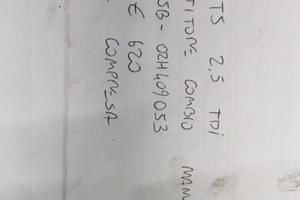 T5 2,5 TDI
TITORE CAMBIO MAN
SB - 02H409053
€ 620
COMPRESA.